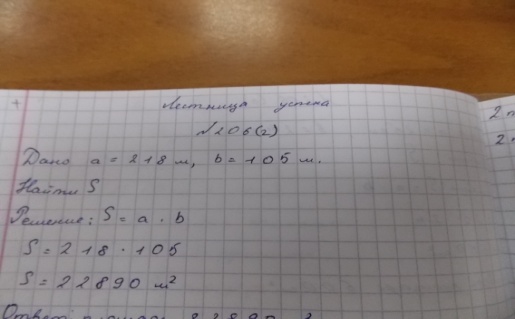 Лестница успеха
№206(2)
Дано a = 218 м, b = 105 м.
Найти S
Решение: S = a · b
S = 218 · 105
S = 22890 м²
Ответ
2
2